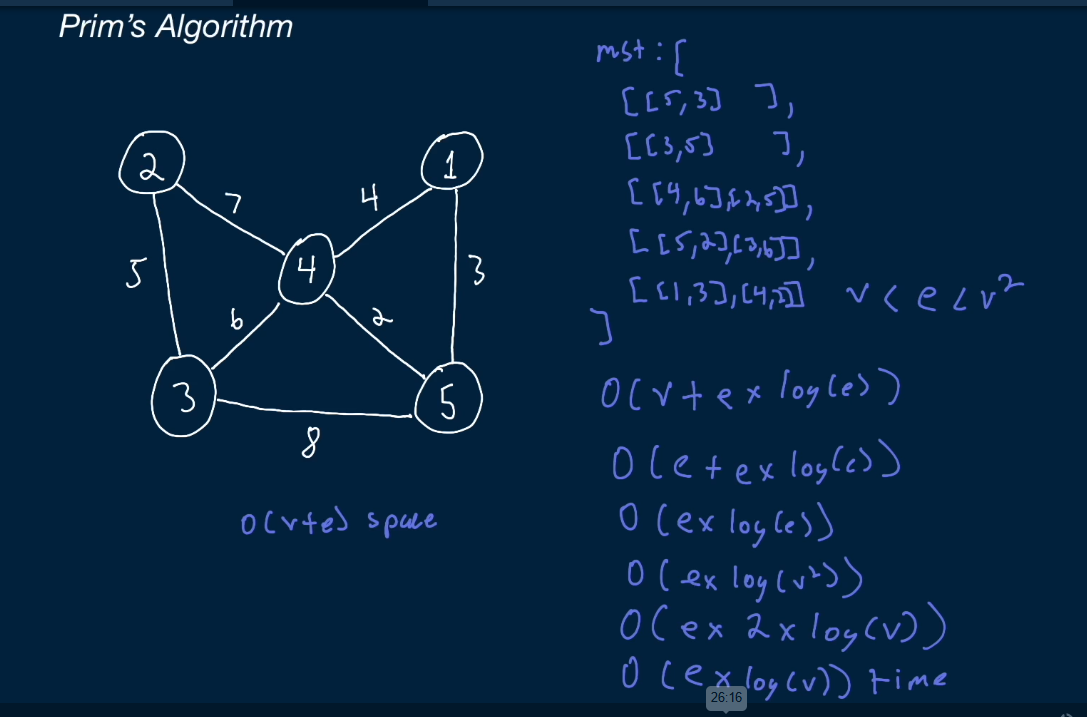 Prim's Algorithm
2
1
7
4
4
5
3
6
2
3
5
8
O(v+e) space
mst : [
[[5,3] ],
[[3,5] ],
[[4,6],[2,5]],
[[5,2],[3,6]],
[[1,3],[4,2]]
]
v < e < v²
O(v + e x log(e))
O(e + e x log(e))
O(e x log(e))
O(e x log(v²))
O(e x 2 x log(v))
O(e x log(v)) time
26:16